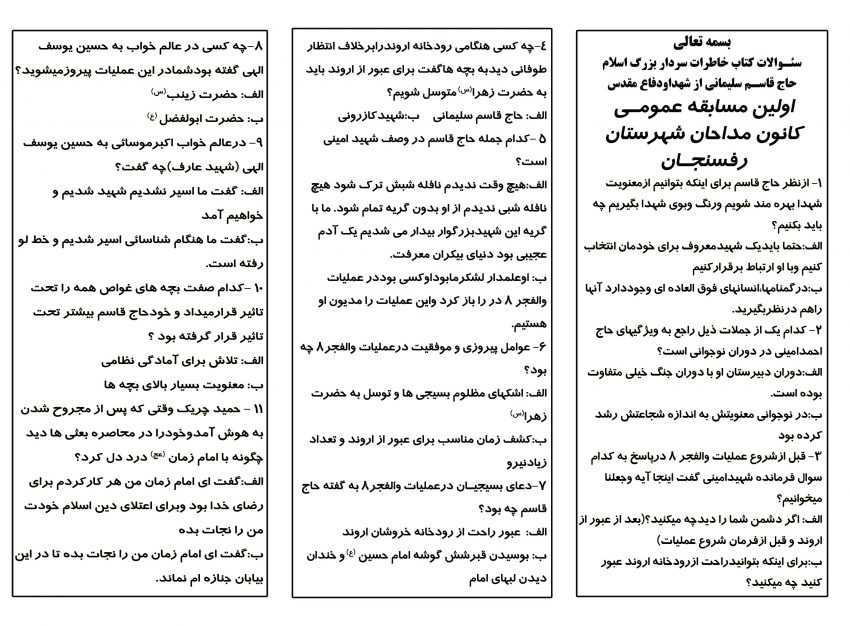 بسمه تعالی
سئوالات کتاب خاطرات سردار بزرگ اسلام
حاج قاسم سلیمانی از شهداودفاع مقدس
اولین مسابقه عمومی
کانون مداحان شهرستان
رفسنجان
۱- ازنظر حاج قاسم برای اینکه بتوانیم ازمعنویت
شهدا بهره مند شویم ورنگ وبوی شهدا بگیریم چه
باید بکنیم؟
الف:حتما بایدیک شهیدمعروف برای خودمان انتخاب
کنیم وبا او ارتباط برقرارکنیم
ب:درگمنامها،انسانهای فوق العاده ای وجوددارد آنها
راهم درنظربگیرید.
۲- کدام یک از جملات ذیل راجع به ویژگیهای حاج
احمدامینی در دوران نوجوانی است؟
الف:دوران دبیرستان او با دوران جنگ خیلی متفاوت
بوده است.
ب:در نوجوانی معنویتش به اندازه شجاعتش رشد
کرده بود
۳- قبل ازشروع عملیات والفجر ۸ درپاسخ به کدام
سوال فرمانده شهیدامینی گفت اینجا آیه وجعلنا
میخوانیم؟
الف: اگر دشمن شما را دیدچه میکنید؟(بعد از عبور از
اروند و قبل ازفرمان شروع عملیات)
ب:برای اینکه بتوانیدراحت ازرودخانه اروند عبور
کنید چه میکنید؟
۴-چه کسی هنگامی رودخانه اروندرابرخلاف انتظار
طوفانی دیدبه بچه هاگفت برای عبور از اروند باید
به حضرت زهرا(س)متوسل شویم؟
الف: حاج قاسم سلیمانی ب:شهیدکازرونی
۵ -کدام جمله حاج قاسم در وصف شهید امینی
است؟
الف:هیچ وقت ندیدم نافله شبش ترک شود هیچ
نافله شبی ندیدم از او بدون گریه تمام شود. ما با
گریه این شهیدبزرگوار بیدار می شدیم یک آدم
عجیبی بود دنیای بیکران معرفت.
ب: اوعلمدار لشکرمابوداوکسی بوددر عملیات
والفجر ۸ در را باز کرد واین عملیات را مدیون او
هستیم.
۶- عوامل پیروزی و موفقیت درعملیات والفجر۸ چه
بود؟
الف: اشکهای مظلوم بسیجی ها و توسل به حضرت
زهرا(س)
ب:کشف زمان مناسب برای عبور از اروند و تعداد
زیادنیرو
۷-دعای بسیجیان درعملیات والفجر۸ به گفته حاج
قاسم چه بود؟
الف: عبور راحت از رودخانه خروشان اروند
ب: بوسیدن قبرشش گوشه امام حسین (ع)و خندان
دیدن لبهای امام
۸-چه کسی در عالم خواب به حسین یوسف
الهی گفته بودشمادر این عملیات پیروزمیشوید؟
الف: حضرت زینب(س)
ب: حضرت ابولفضل (ع)
۹- درعالم خواب اکبرموسائی به حسین یوسف
الهی (شهید عارف)چه گفت؟
الف: گفت ما اسیر نشدیم شهید شدیم و
خواهیم آمد
ب:گفت ما هنگام شناسائی اسیر شدیم و خط لو
رفته است.
۱۰ -کدام صفت بچه های غواص همه را تحت
تاثیر قرارمیداد و خودحاج قاسم بیشتر تحت
تاثیر قرار گرفته بود ؟
الف: تلاش برای آمادگی نظامی
ب: معنویت بسیار بالای بچه ها
۱۱ - حمید چریک وقتی که پس از مجروح شدن
به هوش آمدوخودرا در محاصره بعثی ها دید
چگونه با امام زمان (عج) درد دل کرد؟
الف:گفت ای امام زمان من هر کارکردم برای
رضای خدا بود وبرای اعتلای دین اسلام خودت
من را نجات بده
ب:گفت ای امام زمان من را نجات بده تا در این
بیابان جنازه ام نماند.